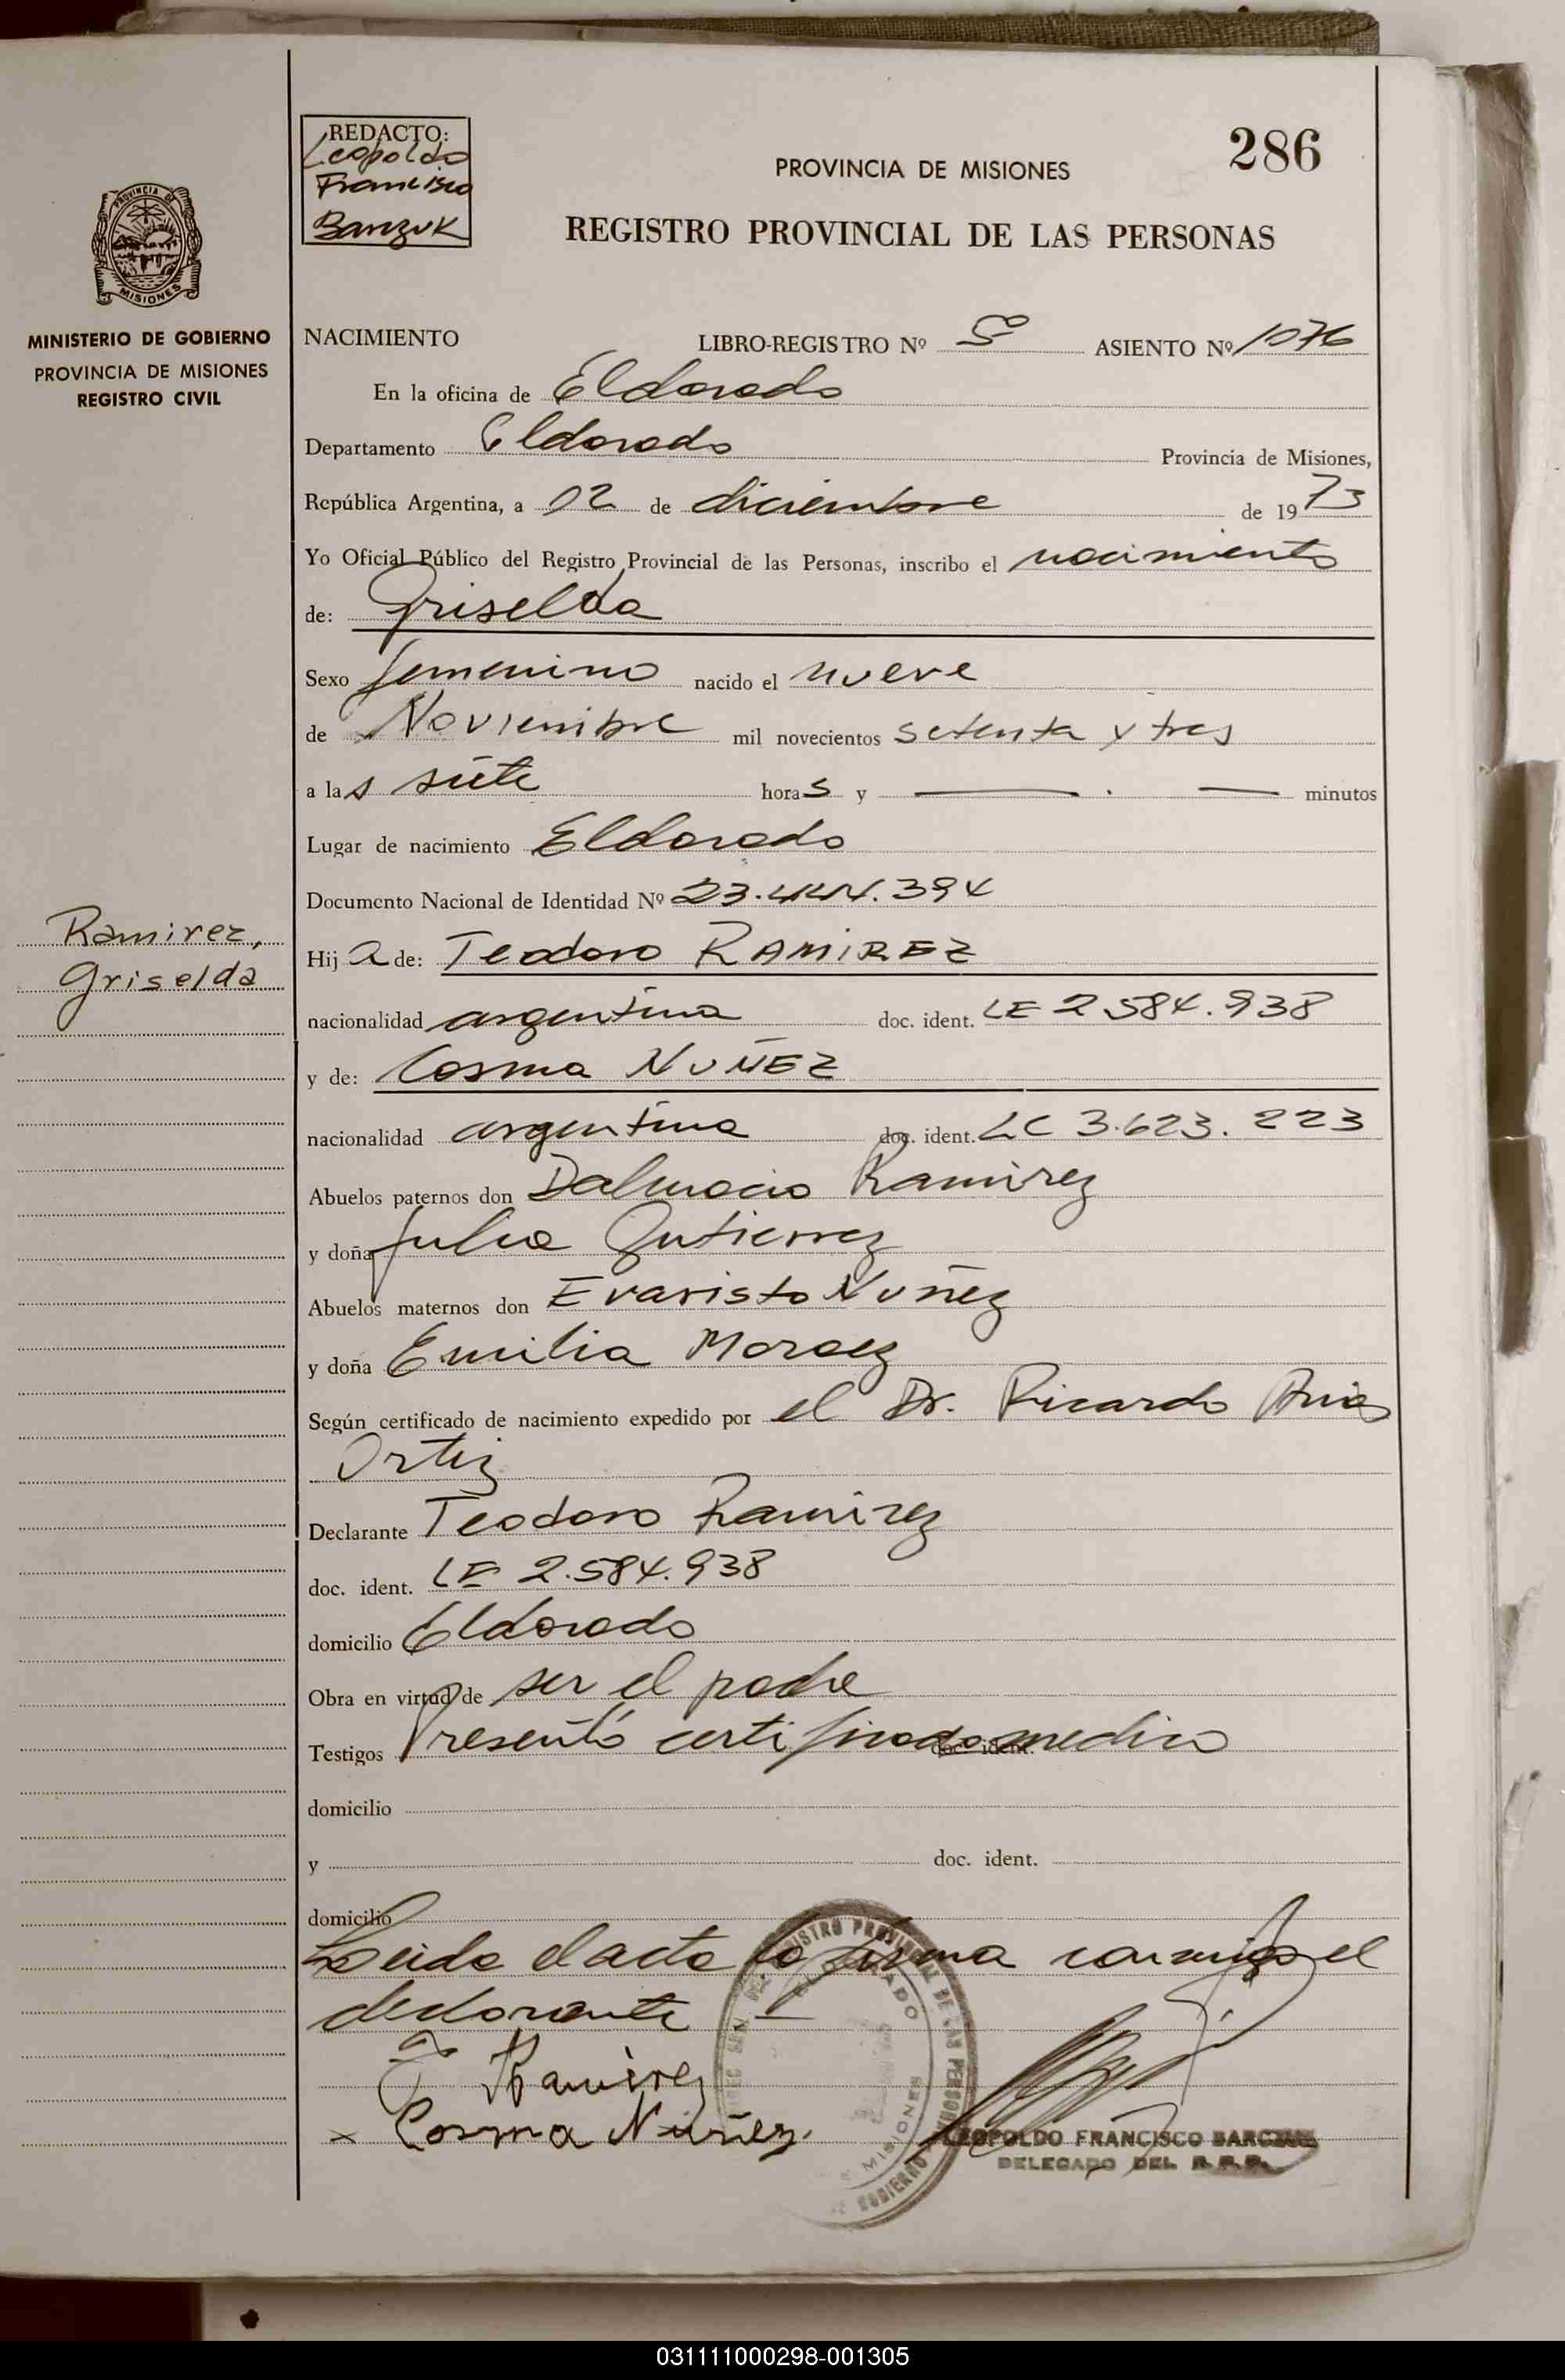 286
REDACTO:
Leopoldo
Francisco
Banzuk
PROVINCIA DE MISIONES
REGISTRO PROVINCIAL DE LAS PERSONAS
PROVINCIA DE
MISIONES
MINISTERIO DE GOBIERNO
PROVINCIA DE MISIONES
REGISTRO CIVIL
NACIMIENTO LIBRO-REGISTRO Nº 5º ASIENTO Nº 1076
En la oficina de Eldorado
Departamento Eldorado Provincia de Misiones,
República Argentina, a 02 de diciembre de 1973
Yo Oficial Público del Registro Provincial de las Personas, inscribo el nacimiento
de: Griselda
Sexo femenino nacido el nueve
de Noviembre mil novecientos setenta y tres
a las siete horas y minutos
Lugar de nacimiento Eldorado
Documento Nacional de Identidad Nº 23.444.394
Ramirez,
Griselda
Hija de: Teodoro RAMIREZ
nacionalidad argentina doc. ident. LE 2584.938
y de: Cosma NUÑEZ
nacionalidad argentina doc. ident. LC 3.623.223
Abuelos paternos don Dalmacio Ramirez
y doña Julia Gutierrez
Abuelos maternos don Evaristo Nuñez
y doña Emilia Moraez
Según certificado de nacimiento expedido por el Dr. Ricardo
Ortiz
Declarante Teodoro Ramirez
doc. ident. LE 2.584.938
domicilio Eldorado
Obra en virtud de ser el padre
Testigos Presentó certificado medico doc. ident.
domicilio
y doc. ident.
domicilio
Leida el acta la firma conmigo el
declarante
Ramirez
x Cosma Nuñez
LEOPOLDO FRANCISCO
DELEGADO DEL R.P.P.
031111000298-001305